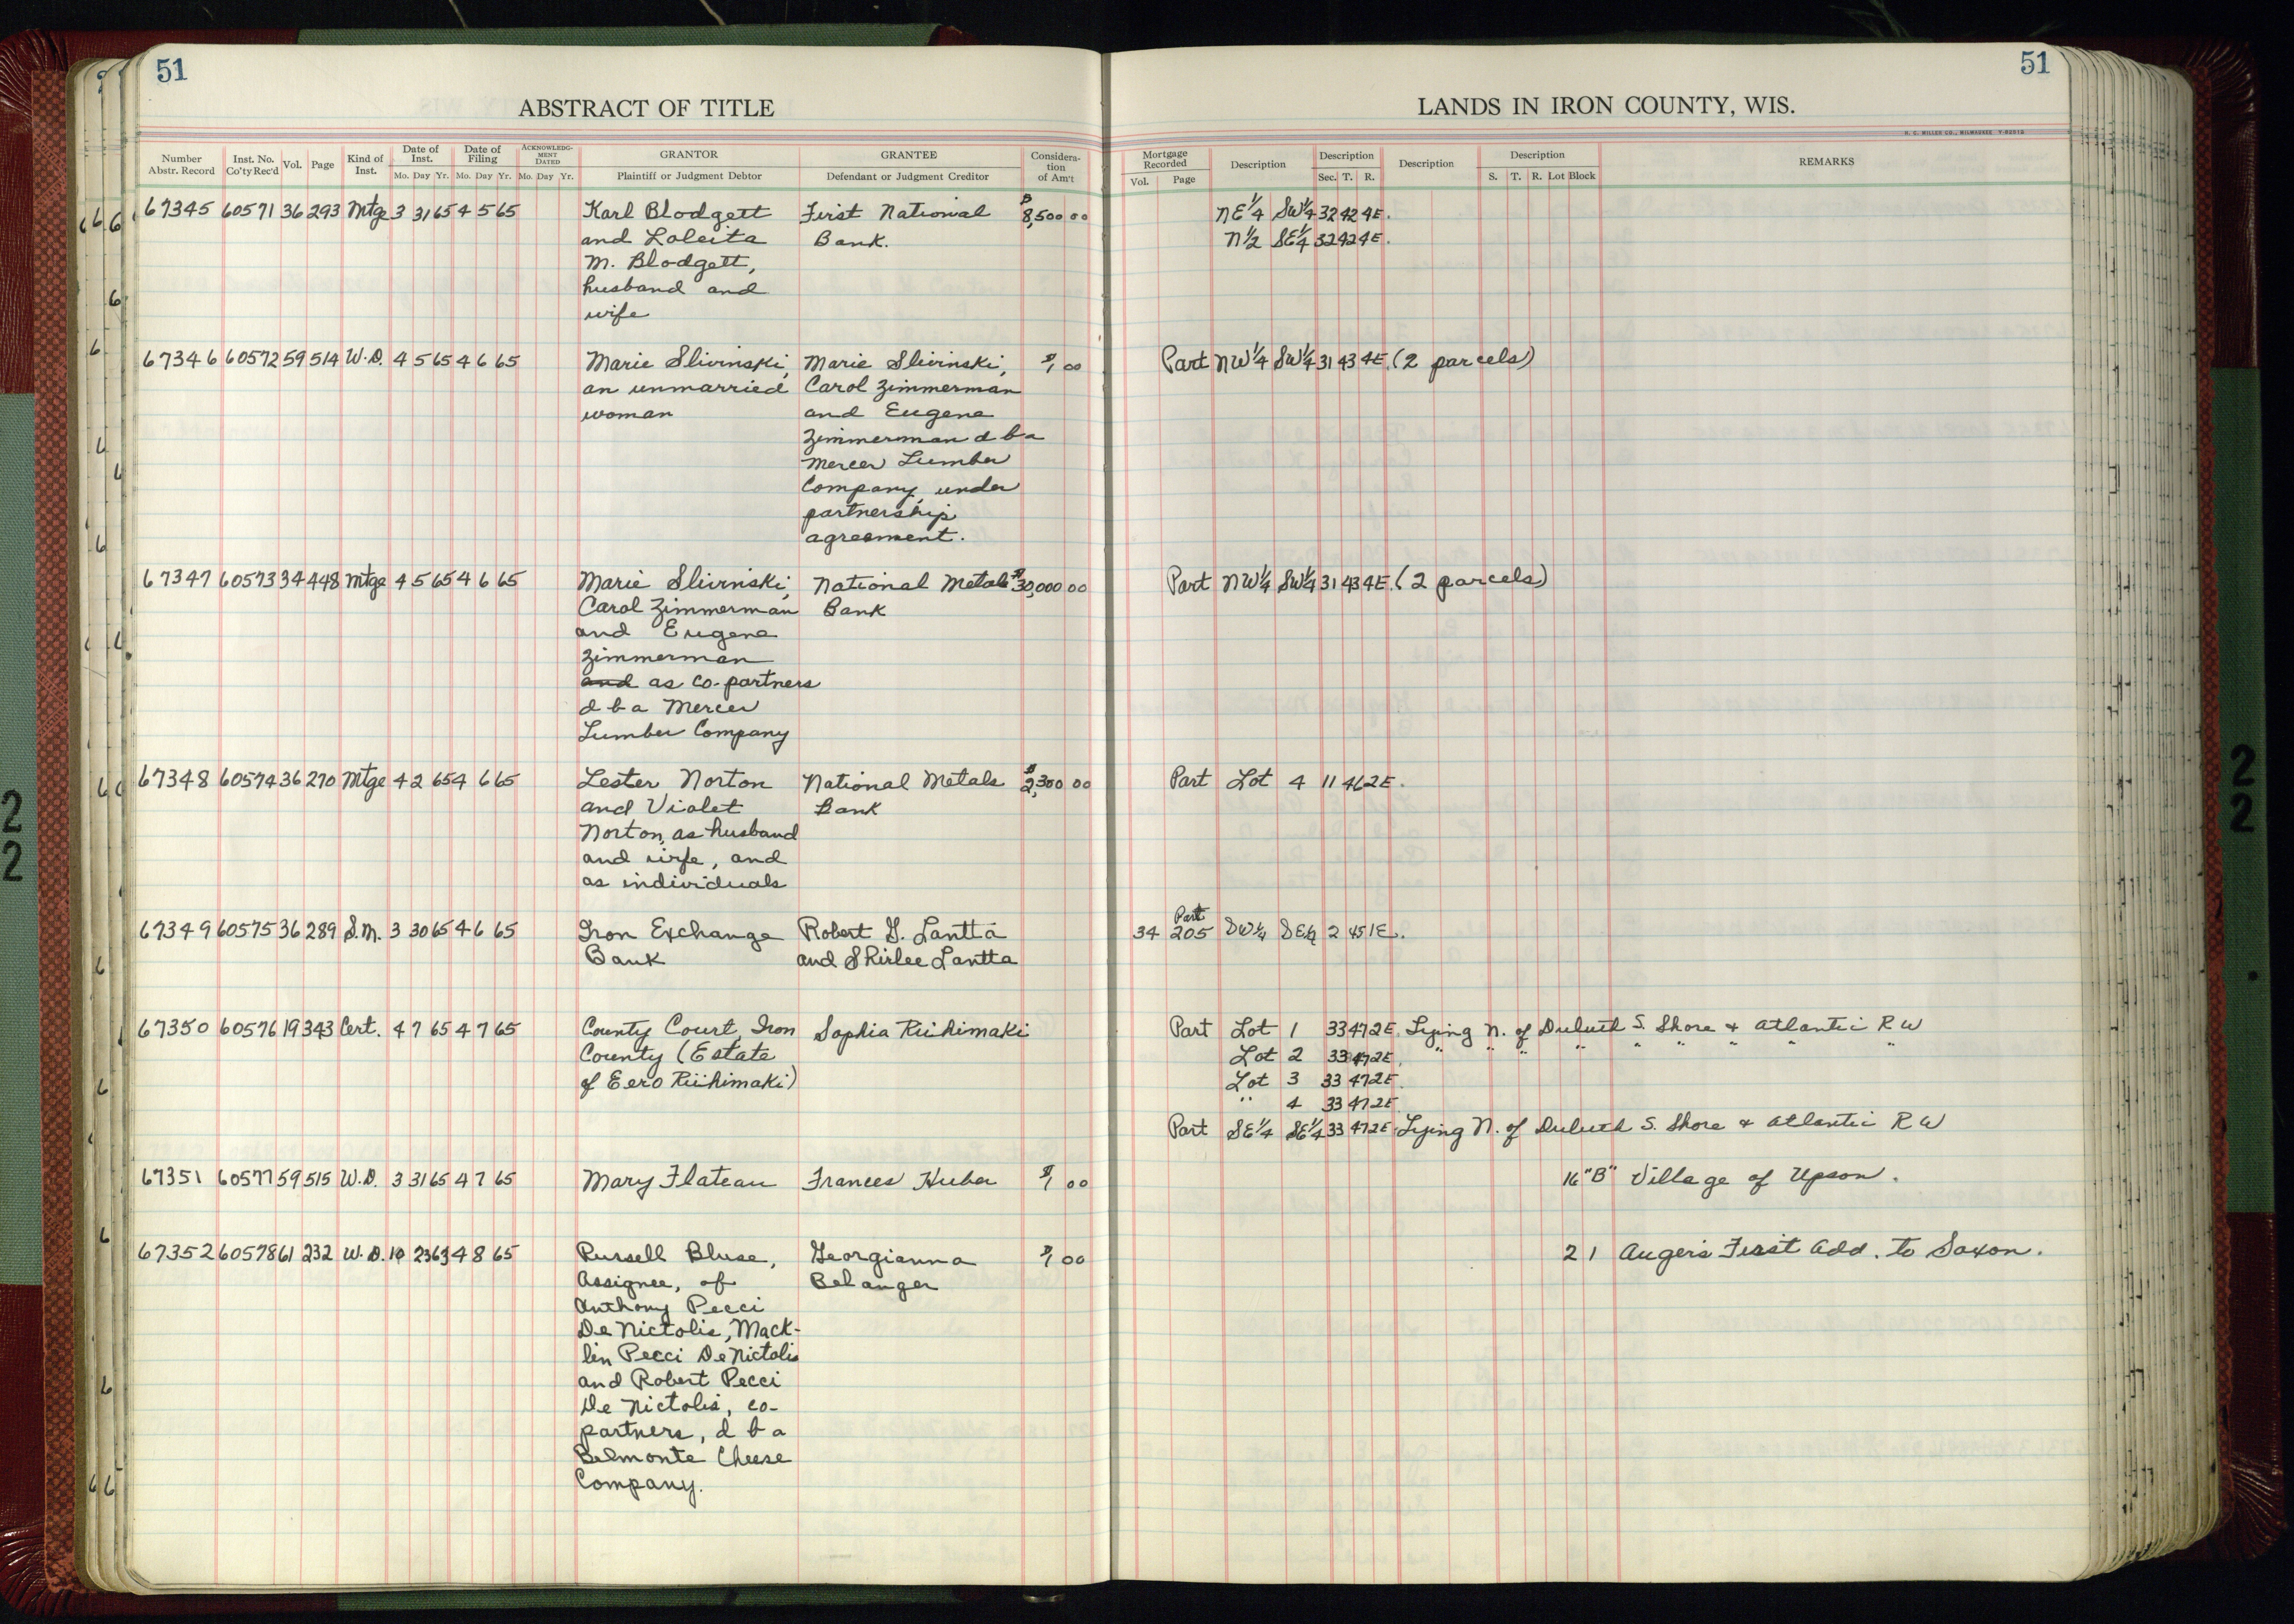 51
51
ABSTRACT OF TITLE
LANDS IN IRON COUNTY, WIS.
H. C. MILLER CO., MILWAUKEE
Number Abstr. Record Inst. No. Co'ty Rec'd Vol. Page Kind of Inst. Date of Inst. Mo. Day Yr. Date of Filing Mo. Day Yr. ACKNOWLEDGMENT DATED Mo. Day Yr. GRANTOR Plaintiff or Judgment Debtor GRANTEE Defendant or Judgment Creditor Consideration of Am't
Mortgage Recorded Vol. Page Description Description Sec. T. R. Description Description S. T. R. Lot Block REMARKS
67345 60571 36 293 Mtge 3 31 65 4 5 65 Karl Blodgett First National $8,500 00 NE 1/4 SW 1/4 32 42 4E.
and Loleita Bank. N 1/2 SE 1/4 32 42 4E.
M. Blodgett,
husband and
wife
67346 60572 59 514 W.D. 4 5 65 4 6 65 Marie Slivinski, Marie Slivinski, $1 00 Part NW 1/4 SW 1/4 31 43 4E. (2 parcels)
an unmarried Carol Zimmerman
woman and Eugene
Zimmerman d b a
Mercer Lumber
Company, under
partnership
agreement.
67347 60573 34 448 Mtge 4 5 65 4 6 65 Marie Slivinski, National Metals $30,000 00 Part NW 1/4 SW 1/4 31 43 4E. (2 parcels)
Carol Zimmerman Bank
and Eugene
Zimmerman
and as co-partners
d b a Mercer
Lumber Company
67348 60574 36 270 Mtge 4 2 65 4 6 65 Lester Norton National Metals $2,300 00 Part Lot 4 11 46 2E.
and Violet Bank
Norton, as husband
and wife, and
as individuals
67349 60575 36 289 S.M. 3 30 65 4 6 65 Iron Exchange Robert G. Lantta 34 205 Part SW 1/4 SE 1/4 2 45 1E.
Bank and Shirlee Lantta
67350 60576 19 343 Cert. 4 7 65 4 7 65 County Court, Iron Sophia Riihimaki Part Lot 1 33 47 2E. Lying N. of Duluth S. Shore & Atlantic R W
County (Estate Lot 2 33 47 2E. " " " " " " " " "
of Eero Riihimaki) Lot 3 33 47 2E.
" 4 33 47 2E
Part SE 1/4 SE 1/4 33 47 2E. Lying N. of Duluth S. Shore & Atlantic R W
67351 60577 59 515 W.D. 3 31 65 4 7 65 Mary Flateau Frances Huber $1 00 16 "B" Village of Upson.
67352 60578 61 232 W.D. 10 23 63 4 8 65 Russell Bluse, Georgianna $1 00 2 1 Auger's First Add. to Saxon.
Assignee, of Belanger
Anthony Pecci
De Nictolis, Mack-
lin Pecci De Nictolis
and Robert Pecci
De Nictolis, co-
partners, d b a
Belmonte Cheese
Company.
2
2
2
2